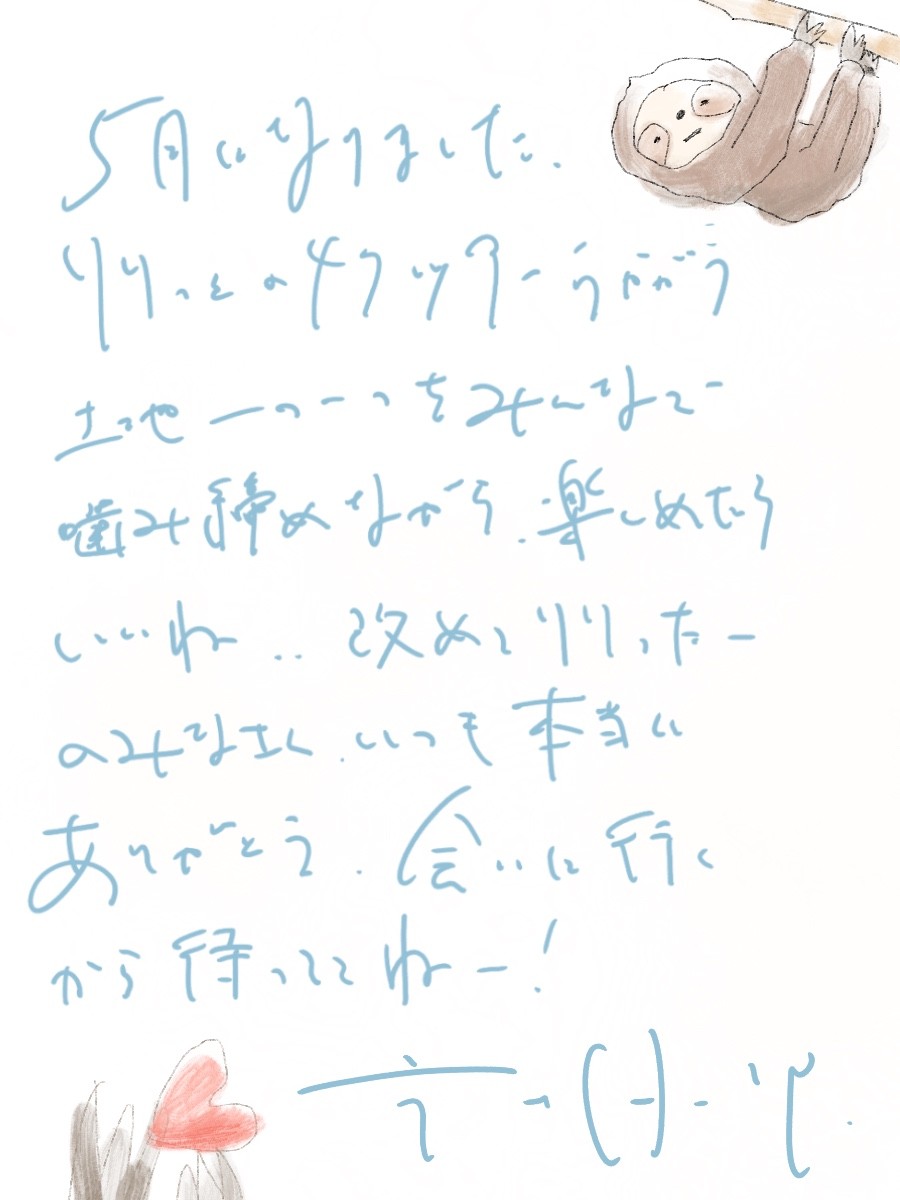 5月になりました.
リリっとのメクッターうかがう
土地一つ一つをみんなで
噛み締めながら.楽しめたら
いいね.. 改めてリリったー
のみなさん.いつも本当に
ありがとう.会いに行く
から待っててねー!